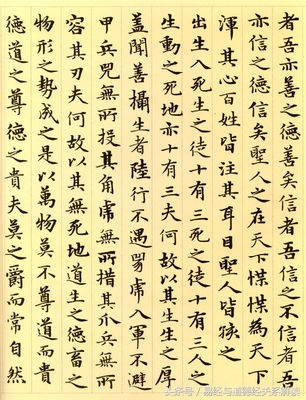 者吾亦善之矣信者吾信之不信者吾
亦信之德信矣聖人之在天下惵惵為天下
渾其心百姓皆注其耳目聖人皆孩之
出生入死生之徒十有三死之徒十有三人之
生動之死地亦十有三夫何故以其生生之厚
蓋聞善攝生者陸行不遇兕虎入軍不避
甲兵兕無所投其角虎無所措其爪兵無所
容其刃夫何故以其無死地道生之德畜之
物形之勢成之是以萬物莫不尊道而貴
德道之尊德之貴夫莫之爵而常自然
头条号/易经与道德经关系解读